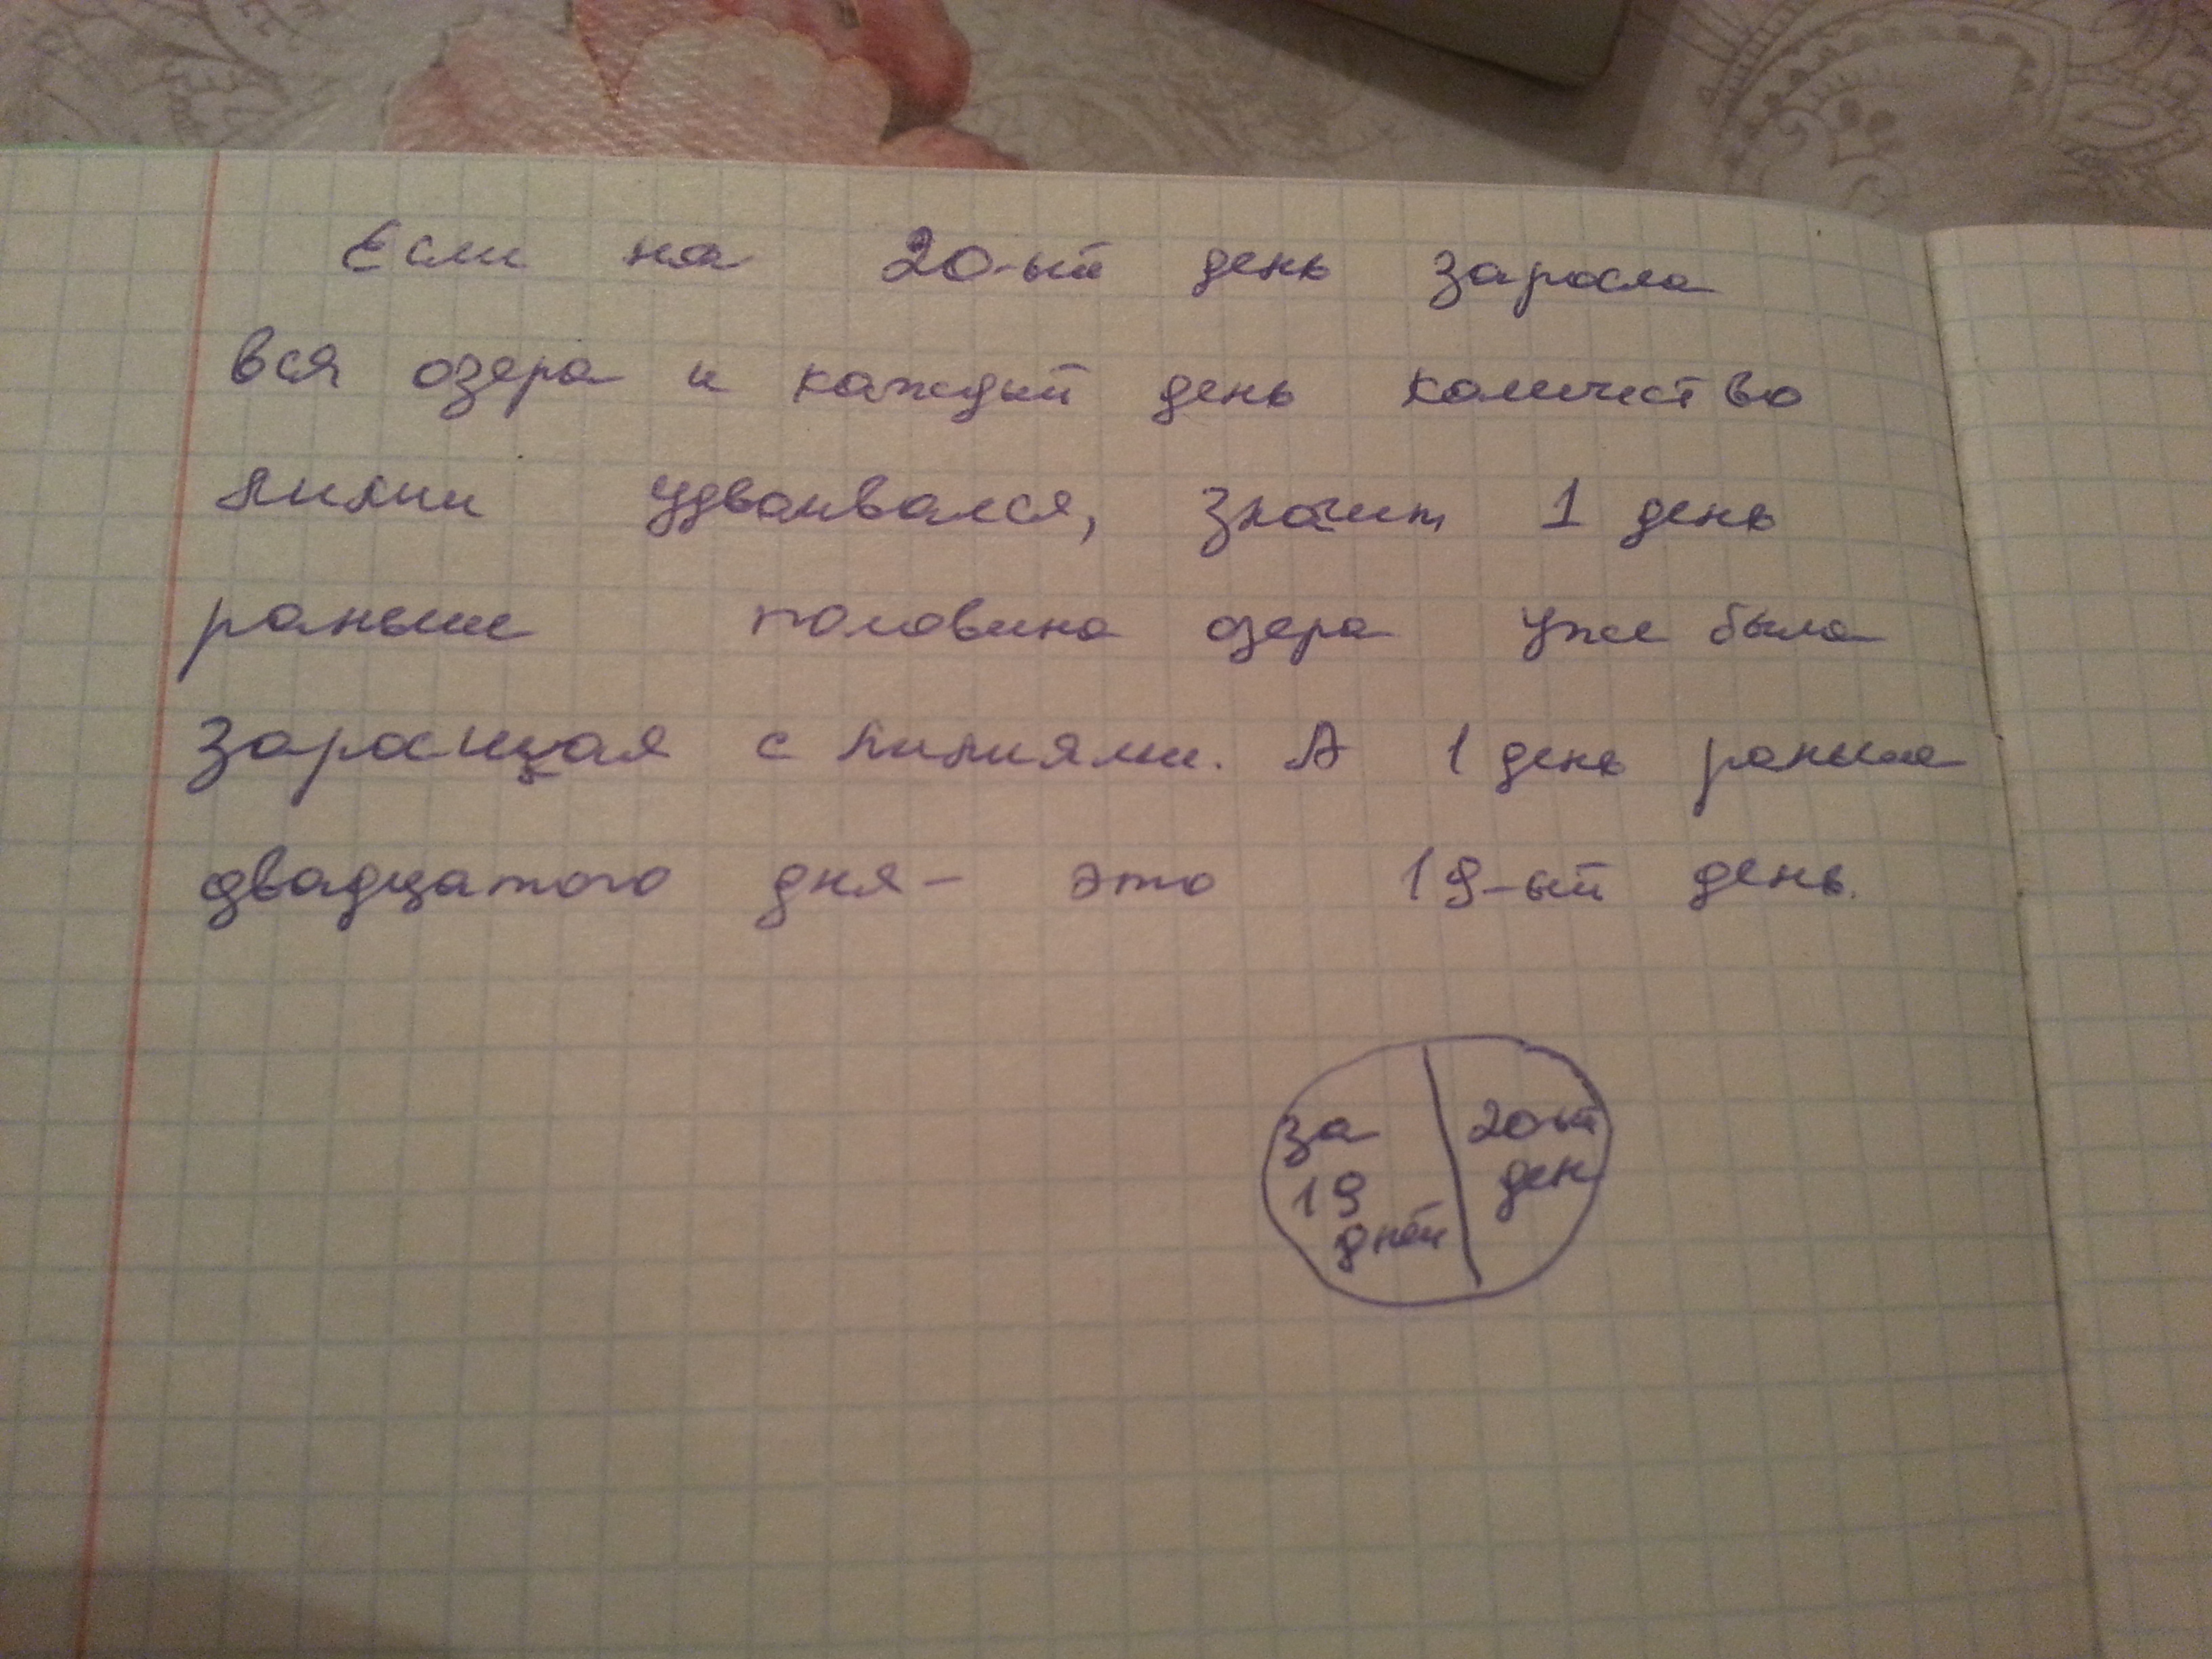 Если на 20-ый день заросла
вся озера и каждый день количество
лилии удваивался, значит 1 день
раньше половина озера уже была
заросщая с лилиями. А 1 день раньше
двадцатого дня- это 19-ый день.
за
19
дней
20-ый
ден